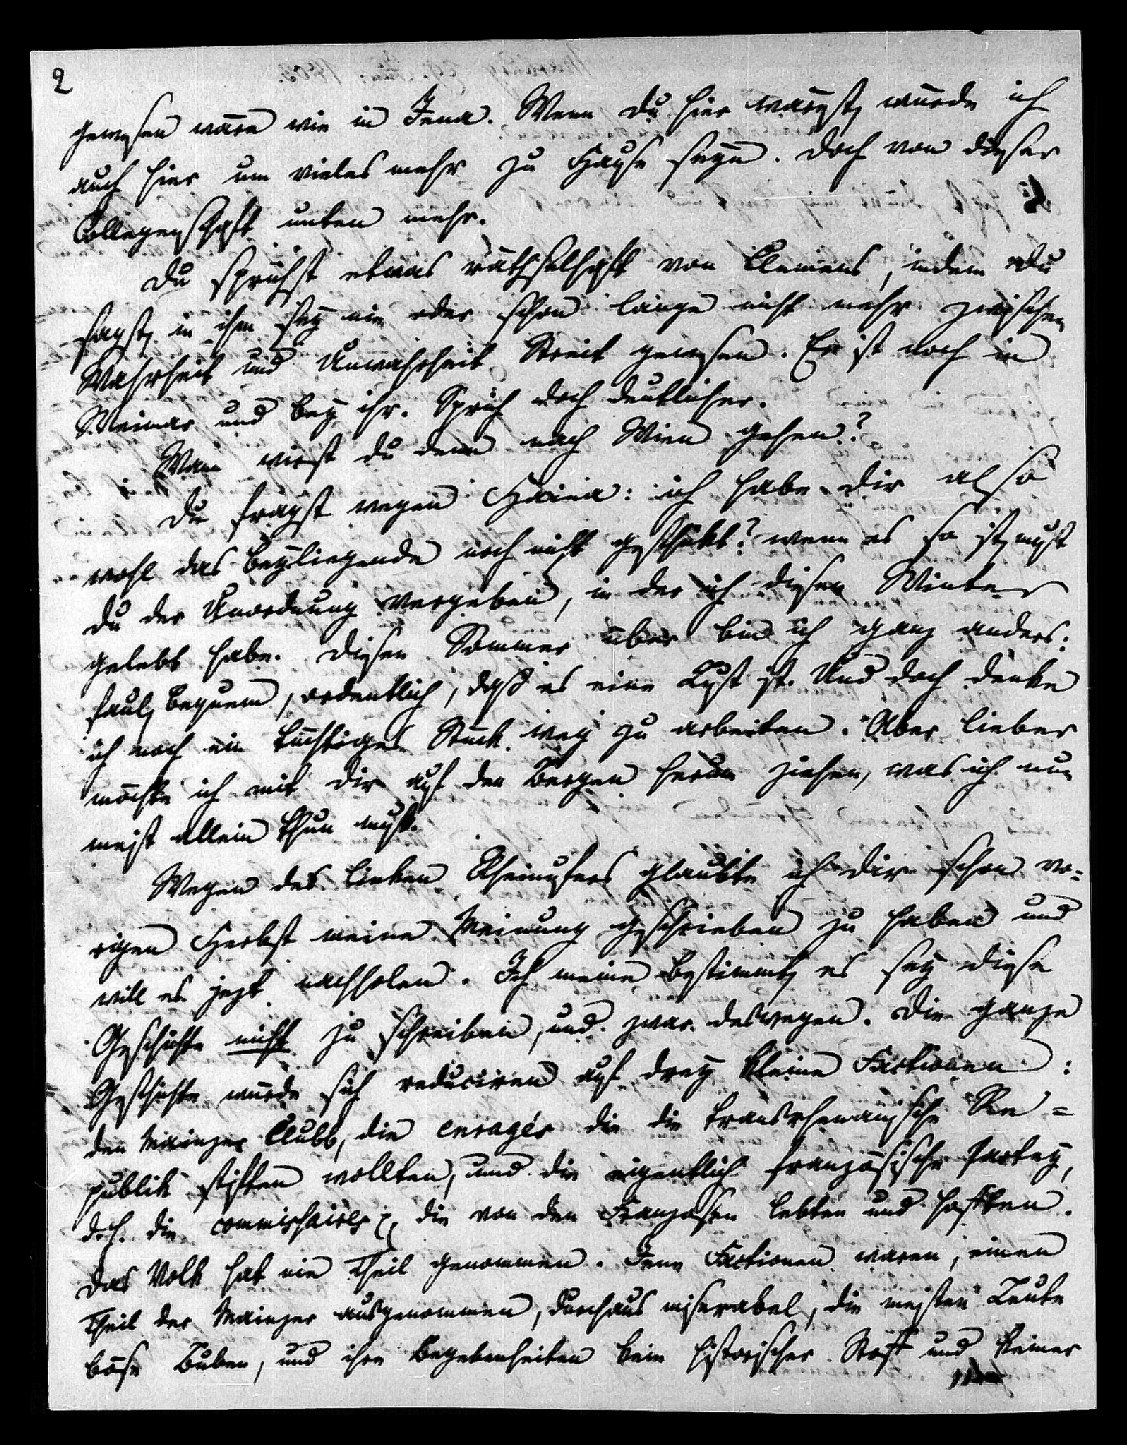 2
gewesen wäre wie in Jena. Wenn du hier wärest, würde ich
auch hier um vieles mehr zu Hause seyn. Doch von dieser
Collegenschaft unten mehr.
Du sprichst etwas räthselhaft von Clemens, indem du
sagst, in ihm sey nie oder schon lange nicht mehr zwischen
Wahrheit und Unwahrheit Streit gewesen. Er ist noch in
Weimar und bey ihr. Sprich doch deutlicher.
Wann wirst du denn nach Wien gehen?
Du fragst wegen Haina: ich habe dir also
wohl das beyliegende noch nicht geschickt? wenn es so ist, must
du der Unordnung vergeben, in der ich diesen Winter
gelebt habe. Diesen Sommer über bin ich ganz anders:
faul, bequem, ordentlich, daß es eine Lust ist. Und doch denke
ich noch ein tüchtiges Stück weg zu arbeiten. Aber lieber
möchte ich mit dir auf den Bergen herum ziehen, was ich nun
meist allein thun muß.
Wegen des linken Rheinufers glaubte ich dir schon vo=
rigen Herbst meine Meinung geschrieben zu haben und
will es jezt nachholen. Ich meine bestimmt, es sey diese
Geschichte nicht zu schreiben, und zwar deswegen. Die ganze
Geschichte würde sich reduciren auf drey kleine Factionen:
den Mainzer Clubb, die enragés die die transrhenanische Re=
publik stiften wollten, und die eigentlich französische Partey,
d.h. die commissaires die von den Franzosen lebten und hofften.
Das Volk hat nie Theil genommen. Jene Factionen waren, einen
Theil der Mainzer ausgenommen, durchaus miserabel, die meisten Leute
böse Buben, und ihre Begebenheiten kein historischer Stoff und keiner